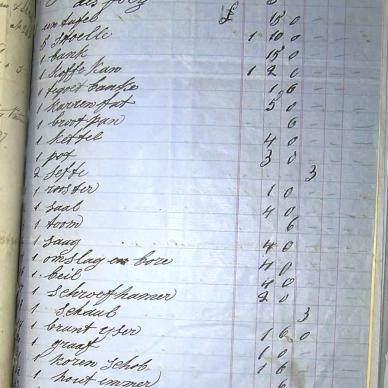 een tafel £ 15 0
5 stoelle 1 10 0
1 bank 15 0
1 koffe kan 1 2 0
1 baake 1 6
1 karren fat 5 0
1 broot pan 6
1 kettel 4 0
1 pot 3 0
2 seffe 3
1 rooster 1 0
1 saal 4 0
1 toom 6
1 saag 4 0
1 omslag en bore 4 0
1 beil 4 0
1 schroef hamer 2 0
1 schaub 3
1 brant yser 1 6 0
1 graaf 1 0
1 koren schob 1 6
1 hout immer 6